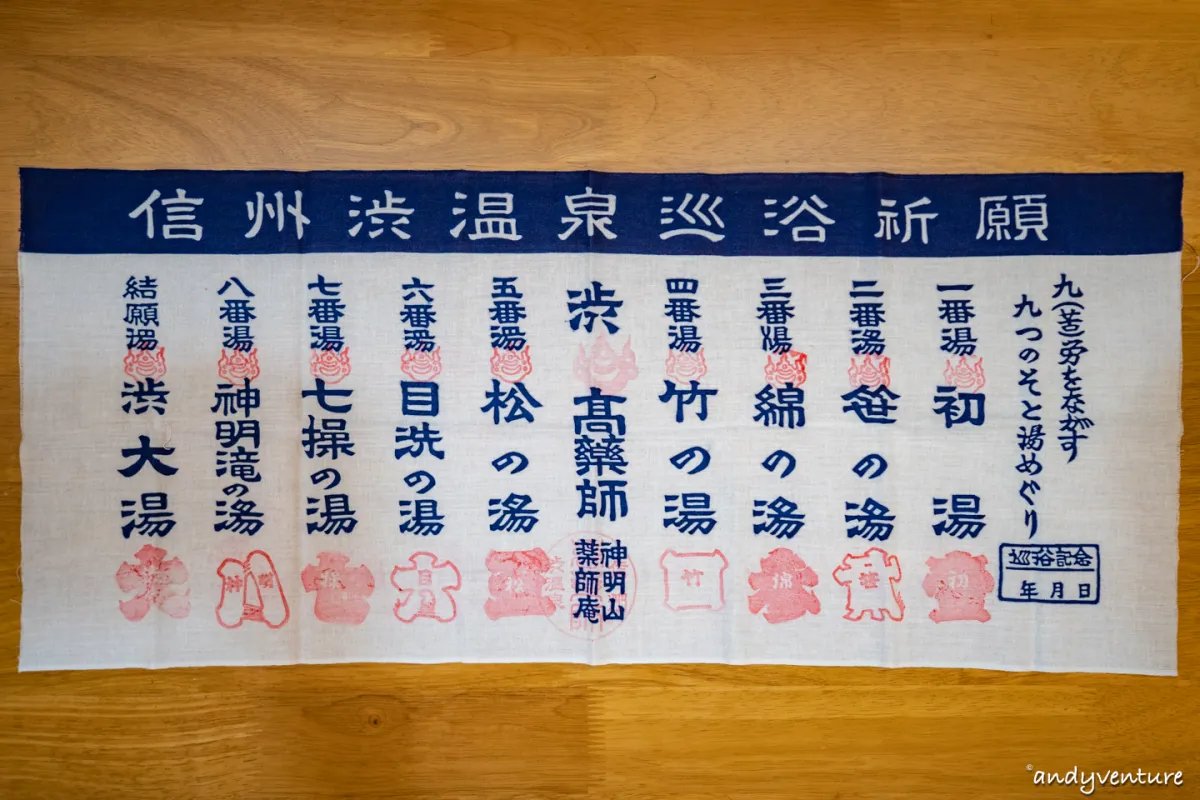 信州渋温泉巡浴祈願
九(苦)労をながす
九つのそと湯めぐり
巡浴記念
年月日
一番湯
初湯
初
二番湯
笹の湯
笹
三番湯
綿の湯
綿
四番湯
竹の湯
竹
渋高薬師
神明山
薬師庵
五番湯
松の湯
松
六番湯
目洗の湯
目
七番湯
七操の湯
八番湯
神明滝の湯
結願湯
渋大湯
©andyventure